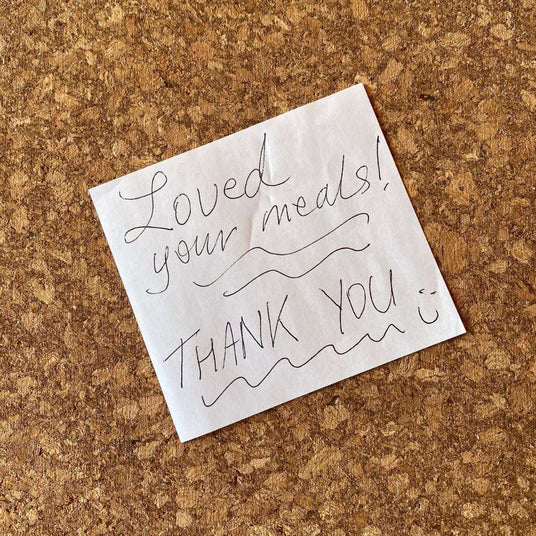 Loved
your meals!
THANK YOU :)